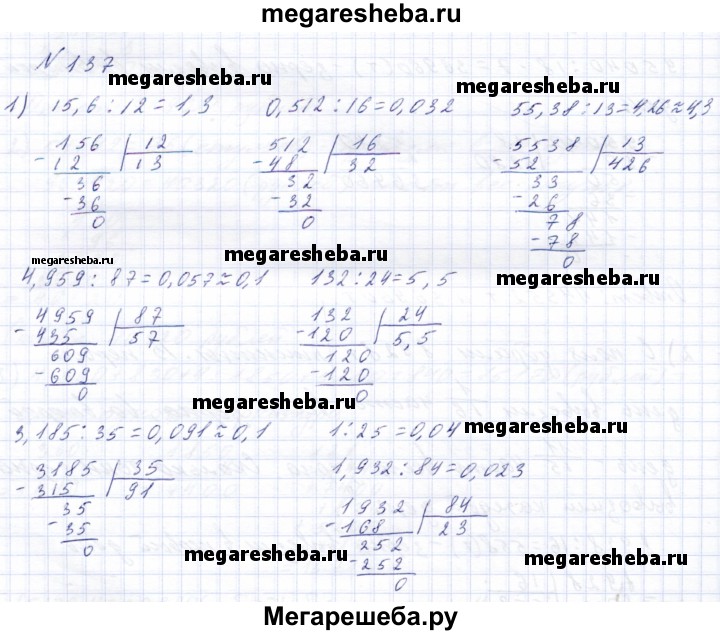 megaresheba.ru
N 137
megaresheba.ru
megaresheba.ru
1) 15,6 : 12 = 1,3   0,512 : 16 = 0,032   55,38 : 13 = 4,26 ≈ 4,3
156 | 12   512 | 16   5538 | 13
- 12 | 13   - 48 | 32   - 52 | 426
36   32   33
- 36   - 32   - 26
0   0   78
- 78
0
megaresheba.ru
megaresheba.ru
megaresheba.ru
4,959 : 87 = 0,057 ≈ 0,1   132 : 24 = 5,5
4959 | 87   132 | 24
- 435 | 57   - 120 | 5,5
609   120
- 609   - 120
0   0
megaresheba.ru
3,185 : 35 = 0,091 ≈ 0,1   1 : 25 = 0,04
megaresheba.ru
3185 | 35   1,932 : 84 = 0,023
- 315 | 91
35   1932 | 84
- 35   - 168 | 23
0   252
- 252
0
megaresheba.ru
megaresheba.ru
Мегарешеба.ру